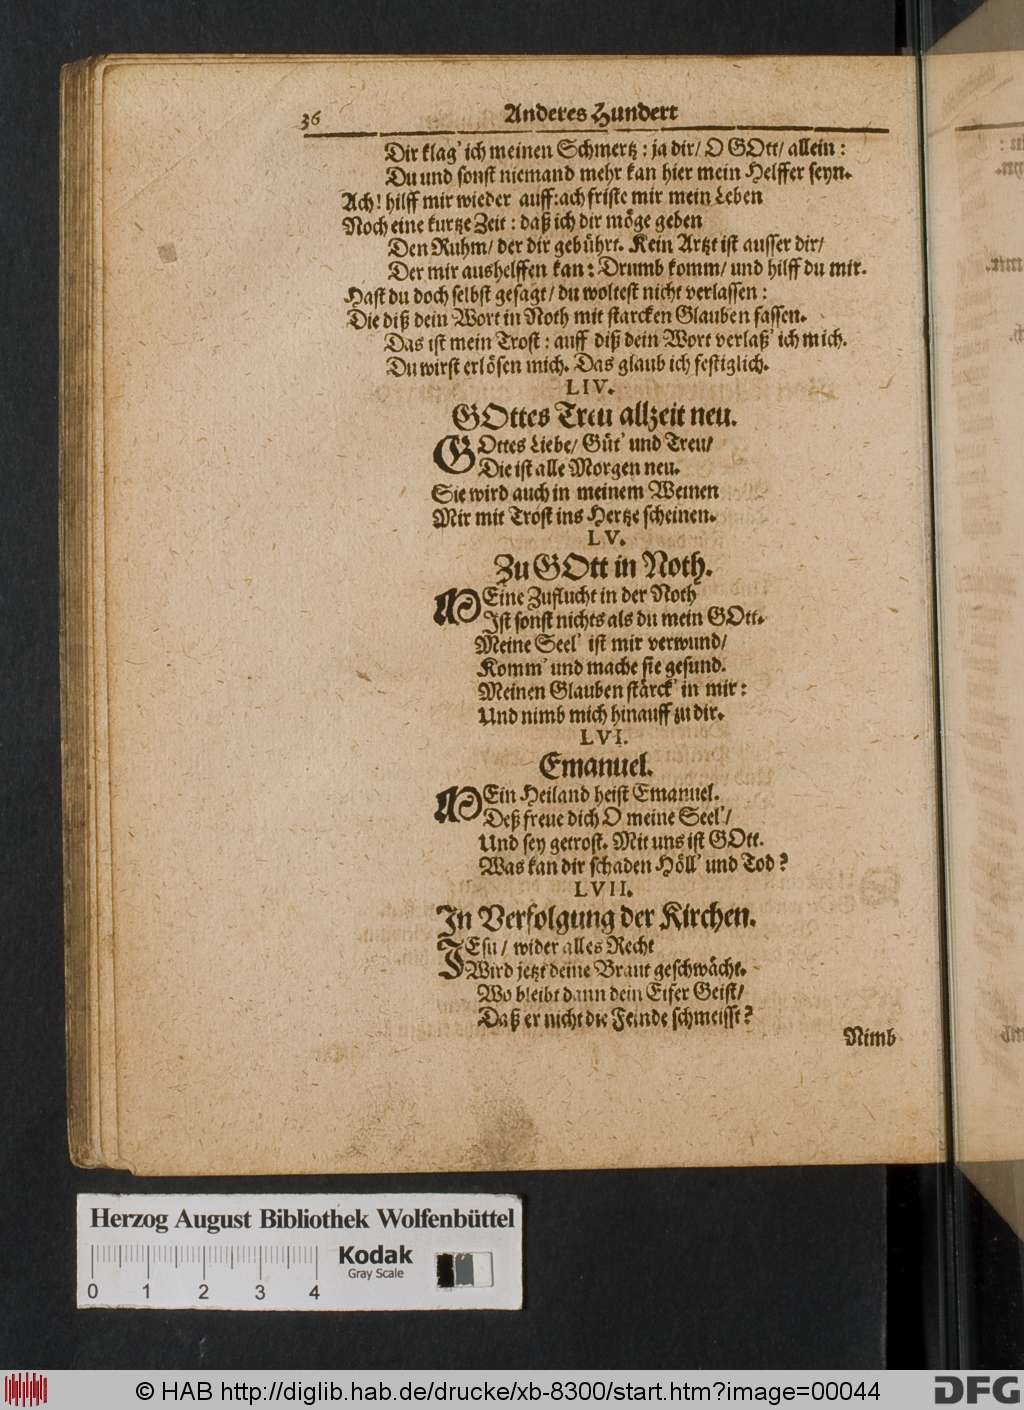 36 Anderes Hundert
Dir klag' ich meinen Schmertz : ja dir/ O GOtt/ allein :
Du und sonst niemand mehr kan hier mein Helffer seyn.
Ach! hilff mir wieder auff: ach friste mir mein Leben
Noch eine kurtze Zeit : daß ich dir möge geben
Den Ruhm/ der dir gebührt. Kein Artzt ist ausser dir/
Der mir aushelffen kan: Drumb komm/ und hilff du mir.
Hast du doch selbst gesagt/ du woltest nicht verlassen :
Die diß dein Wort in Noth mit starcken Glauben fassen.
Das ist mein Trost : auff diß dein Wort verlaß' ich mich.
Du wirst erlösen mich. Das glaub ich festiglich.
LIV.
GOttes Treu allzeit neu.
GOttes Liebe/ Güt' und Treu/
Die ist alle Morgen neu.
Sie wird auch in meinem Weinen
Mir mit Trost ins Hertze scheinen.
LV.
Zu GOtt in Noth.
MEine Zuflucht in der Noth
Ist sonst nichts als du mein GOtt.
Meine Seel' ist mir verwund/
Komm' und mache sie gesund.
Meinen Glauben stärck' in mir :
Und nimb mich hinauff zu dir.
LVI.
Emanuel.
MEin Heiland heist Emanuel.
Deß freue dich O meine Seel'/
Und sey getrost. Mit uns ist GOtt.
Was kan dir schaden Höll' und Tod?
LVII.
In Verfolgung der Kirchen.
JEsu/ wider alles Recht
Wird jetzt deine Braut geschwächt.
Wo bleibt dann dein Eifer Geist/
Daß er nicht die Feinde schmeisst?
Nimb
Herzog August Bibliothek Wolfenbüttel
Kodak
Gray Scale
0 1 2 3 4
© HAB http://diglib.hab.de/drucke/xb-8300/start.htm?image=00044
DFG